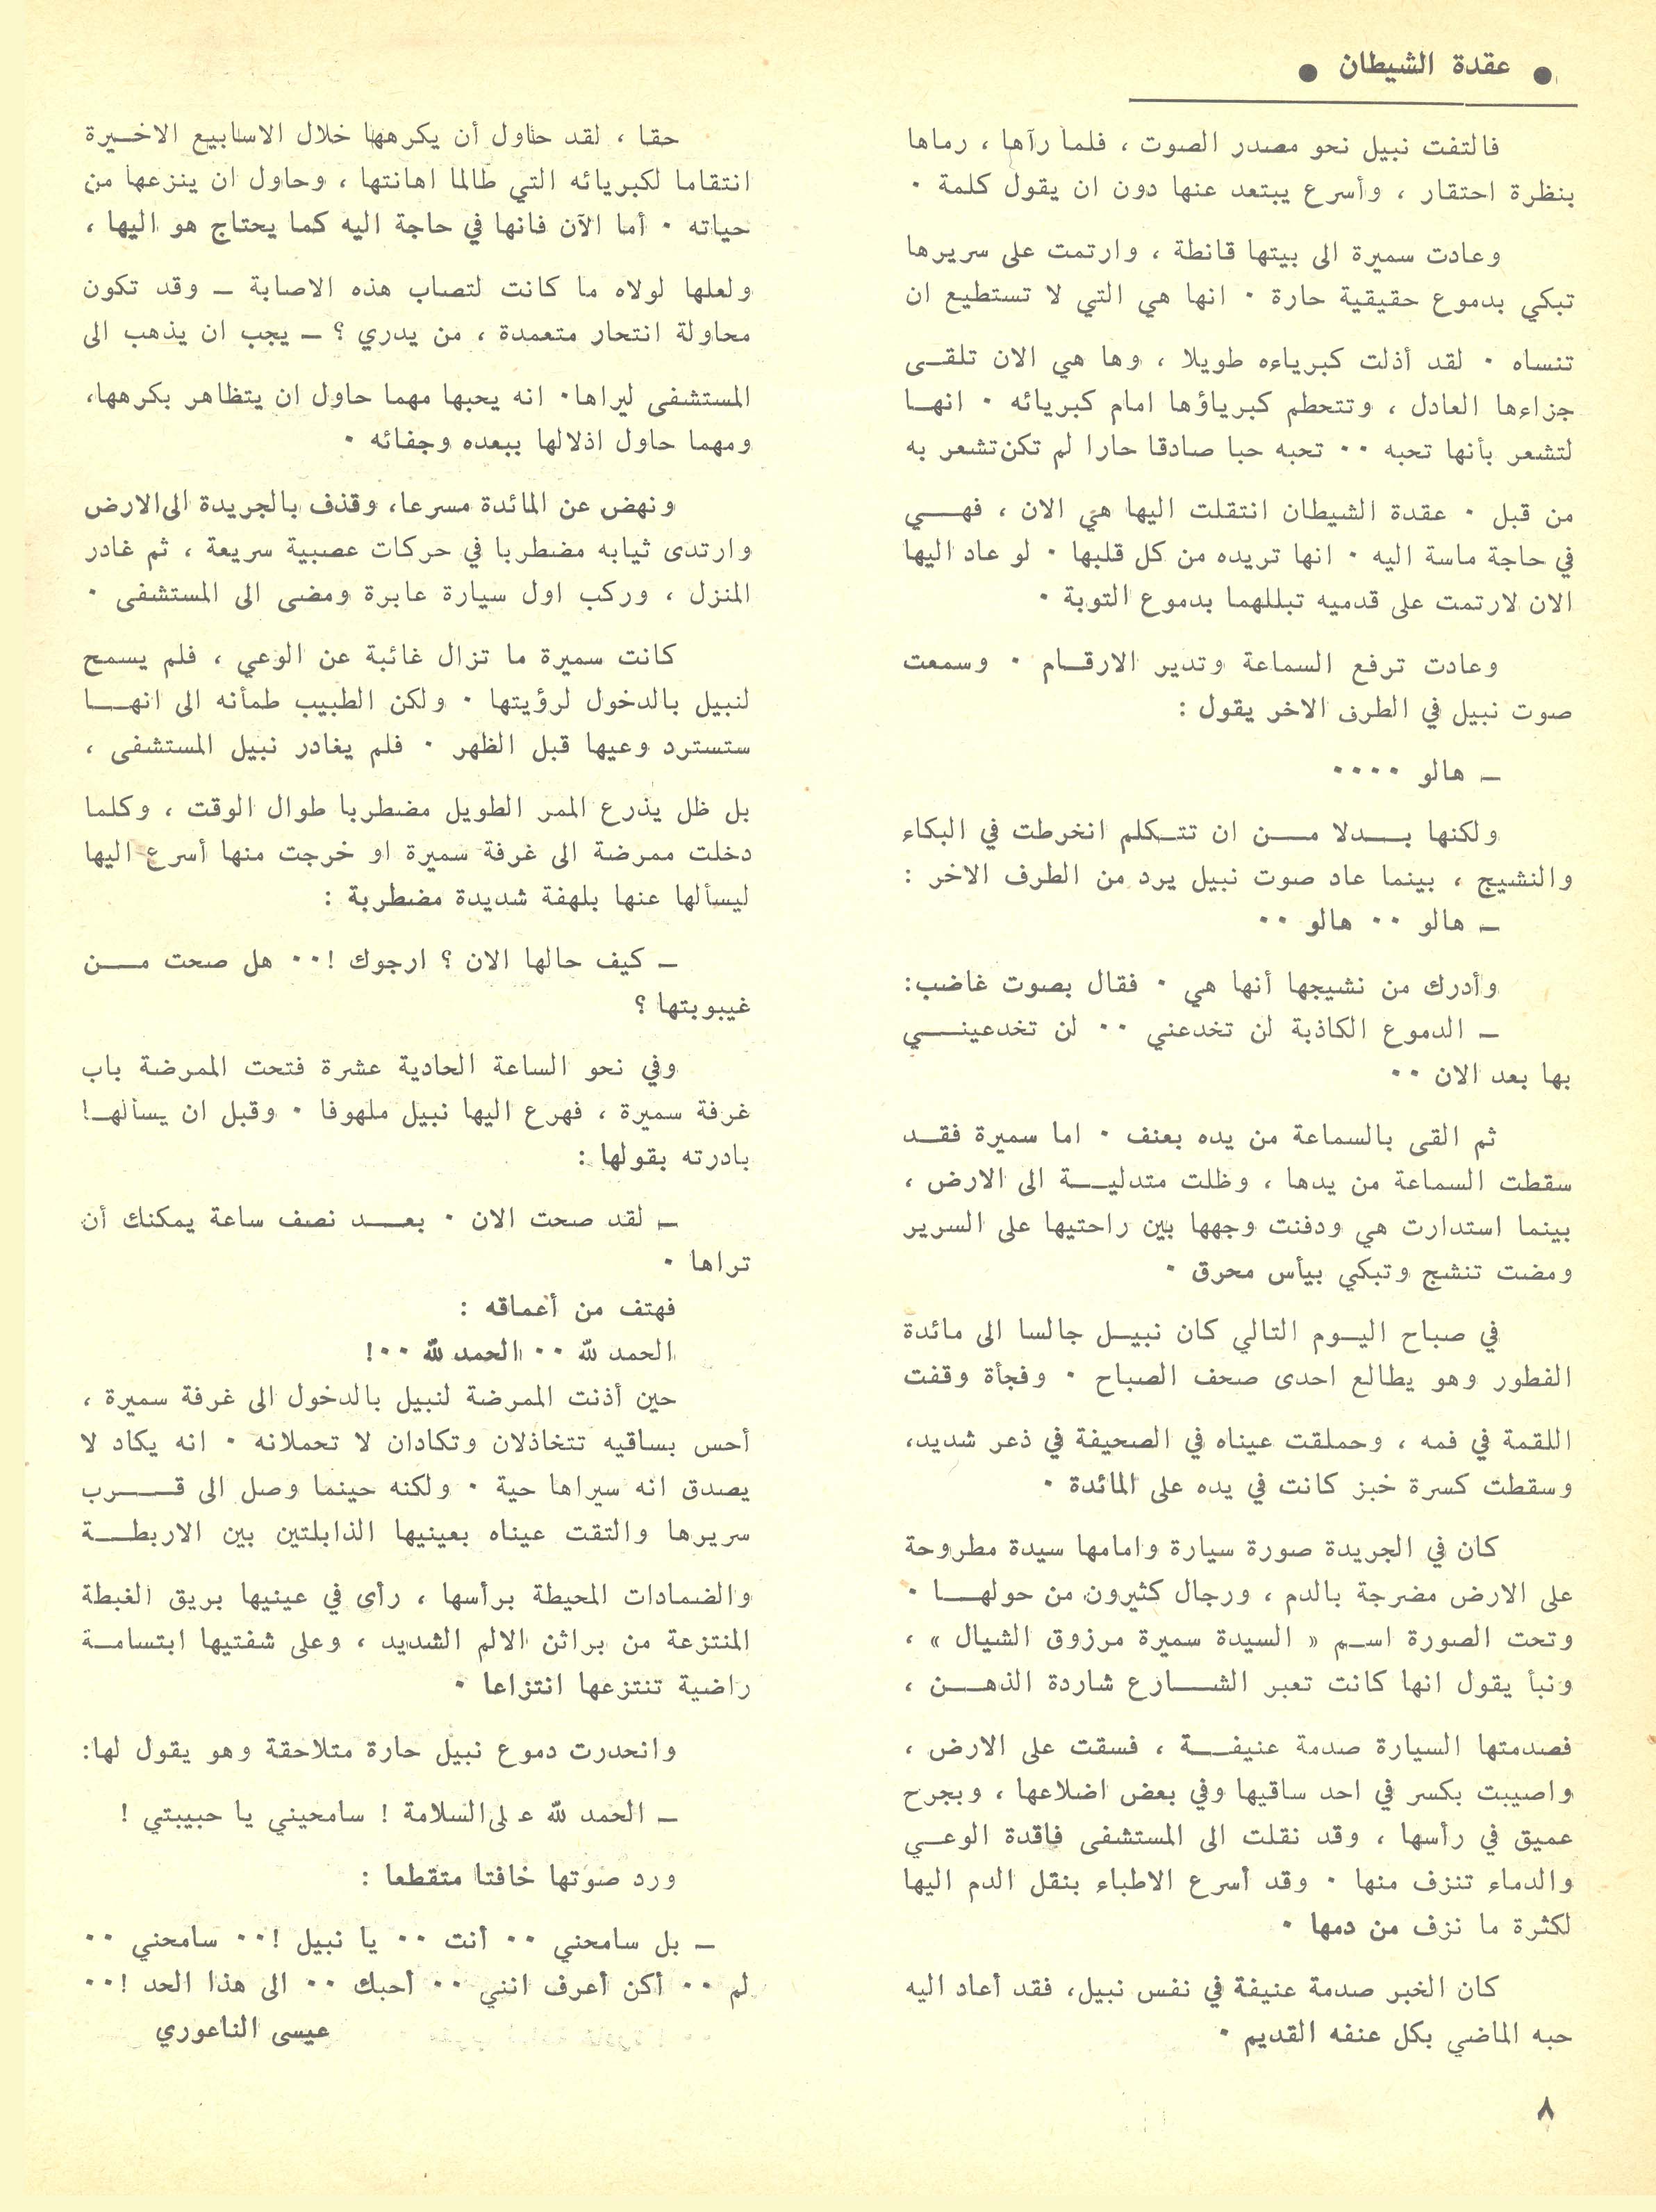 ● عقدة الشيطان ●
فالتفت نبيل نحو مصدر الصوت ، فلما رآها ، رماها
بنظرة احتقار ، وأسرع يبتعد عنها دون ان يقول كلمة ٠
وعادت سميرة الى بيتها قانطة ، وارتمت على سريرها
تبكي بدموع حقيقية حارة ٠ انها هي التي لا تستطيع ان
تنساه ٠ لقد أذلت كبرياءه طويلا ، وها هي الان تلقــى
جزاءها العادل ، وتتحطم كبرياؤها امام كبريائه ٠ انهــا
لتشعر بأنها تحبه ٠٠ تحبه حبا صادقا حارا لم تكن تشعر به
من قبل ٠ عقدة الشيطان انتقلت اليها هي الان ، فهــي
في حاجة ماسة اليه ٠ انها تريده من كل قلبها ٠ لو عاد اليها
الان لارتمت على قدميه تبللهما بدموع التوبة ٠
وعادت ترفع السماعة وتدير الارقــام ٠ وسمعت
صوت نبيل في الطرف الاخر يقول :
ــ هالو ٠٠٠٠
ولكنها بــدلا مــن ان تتــكلم انخرطت في البكاء
والنشيج ، بينما عاد صوت نبيل يرد من الطرف الاخر :
ــ هالو ٠٠ هالو ٠٠
وأدرك من نشيجها أنها هي ٠ فقال بصوت غاضب:
ــ الدموع الكاذبة لن تخدعني ٠٠ لن تخدعينــي
بها بعد الان ٠٠
ثم القى بالسماعة من يده بعنف ٠ اما سميرة فقــد
سقطت السماعة من يدها ، وظلت متدليــة الى الارض ،
بينما استدارت هي ودفنت وجهها بين راحتيها على السرير
ومضت تنشج وتبكي بيأس محرق ٠
في صباح اليــوم التالي كان نبيــل جالسا الى مائدة
الفطور وهو يطالع احدى صحف الصباح ٠ وفجأة وقفت
اللقمة في فمه ، وحملقت عيناه في الصحيفة في ذعر شديد،
وسقطت كسرة خبز كانت في يده على المائدة ٠
كان في الجريدة صورة سيارة وامامها سيدة مطروحة
على الارض مضرجة بالدم ، ورجال كثيرون من حولهــا ٠
وتحت الصورة اســم « السيدة سميرة مرزوق الشيال » ،
ونبأ يقول انها كانت تعبر الشــارع شاردة الذهــن ،
فصدمتها السيارة صدمة عنيفــة ، فسقت على الارض ،
واصيبت بكسر في احد ساقيها وفي بعض اضلاعها ، وبجرح
عميق في رأسها ، وقد نقلت الى المستشفى فاقدة الوعــي
والدماء تنزف منها ٠ وقد أسرع الاطباء بنقل الدم اليها
لكثرة ما نزف من دمها ٠
كان الخبر صدمة عنيفة في نفس نبيل، فقد أعاد اليه
حبه الماضي بكل عنفه القديم ٠
حقا ، لقد حاول أن يكرهها خلال الاسابيع الاخــيرة
انتقاما لكبريائه التي طالما اهانتها ، وحاول ان ينزعها من
حياته ٠ أما الآن فانها في حاجة اليه كما يحتاج هو اليها ،
ولعلها لولاه ما كانت لتصاب هذه الاصابة ــ وقد تكون
محاولة انتحار متعمدة ، من يدري ؟ ــ يجب ان يذهب الى
المستشفى ليراها٠ انه يحبها مهما حاول ان يتظاهر بكرهها،
ومهما حاول اذلالها ببعده وجفائه ٠
ونهض عن المائدة مسرعا، وقذف بالجريدة الى الارض
وارتدى ثيابه مضطربا في حركات عصبية سريعة ، ثم غادر
المنزل ، وركب اول سيارة عابرة ومضى الى المستشفى ٠
كانت سميرة ما تزال غائبة عن الوعي ، فلم يسمح
لنبيل بالدخول لرؤيتها ٠ ولكن الطبيب طمأنه الى انهــا
ستسترد وعيها قبل الظهر ٠ فلم يغادر نبيل المستشفى ،
بل ظل يذرع الممر الطويل مضطربا طوال الوقت ، وكلما
دخلت ممرضة الى غرفة سميرة او خرجت منها أسرع اليها
ليسألها عنها بلهفة شديدة مضطربة :
ــ كيف حالها الان ؟ ارجوك !٠٠ هل صحت مــن
غيبوبتها ؟
وفي نحو الساعة الحادية عشرة فتحت الممرضة باب
غرفة سميرة ، فهرع اليها نبيل ملهوفا ٠ وقبل ان يسألهــا
بادرته بقولها :
ــ لقد صحت الان ٠ بعــد نصف ساعة يمكنك أن
تراها ٠
فهتف من أعماقه :
الحمد لله ٠٠ الحمد لله ٠٠!
حين أذنت الممرضة لنبيل بالدخول الى غرفة سميرة ،
أحس بساقيه تتخاذلان وتكادان لا تحملانه ٠ انه يكاد لا
يصدق انه سيراها حية ٠ ولكنه حينما وصل الى قــرب
سريرها والتقت عيناه بعينيها الذابلتين بين الاربطــة
والضمادات المحيطة برأسها ، رأى في عينيها بريق الغبطة
المنتزعة من براثن الالم الشديد ، وعلى شفتيها ابتسامــة
راضية تنتزعها انتزاعا ٠
وانحدرت دموع نبيل حارة متلاحقة وهو يقول لها:
ــ الحمد لله على السلامة ! سامحيني يا حبيبتي !
ورد صوتها خافتا متقطعا :
ــ بل سامحني ٠٠ أنت ٠٠ يا نبيل !٠٠ سامحني ٠٠
لم ٠٠ أكن أعرف انني ٠٠ أحبك ٠٠ الى هذا الحد !٠٠
عيسى الناعوري
٨